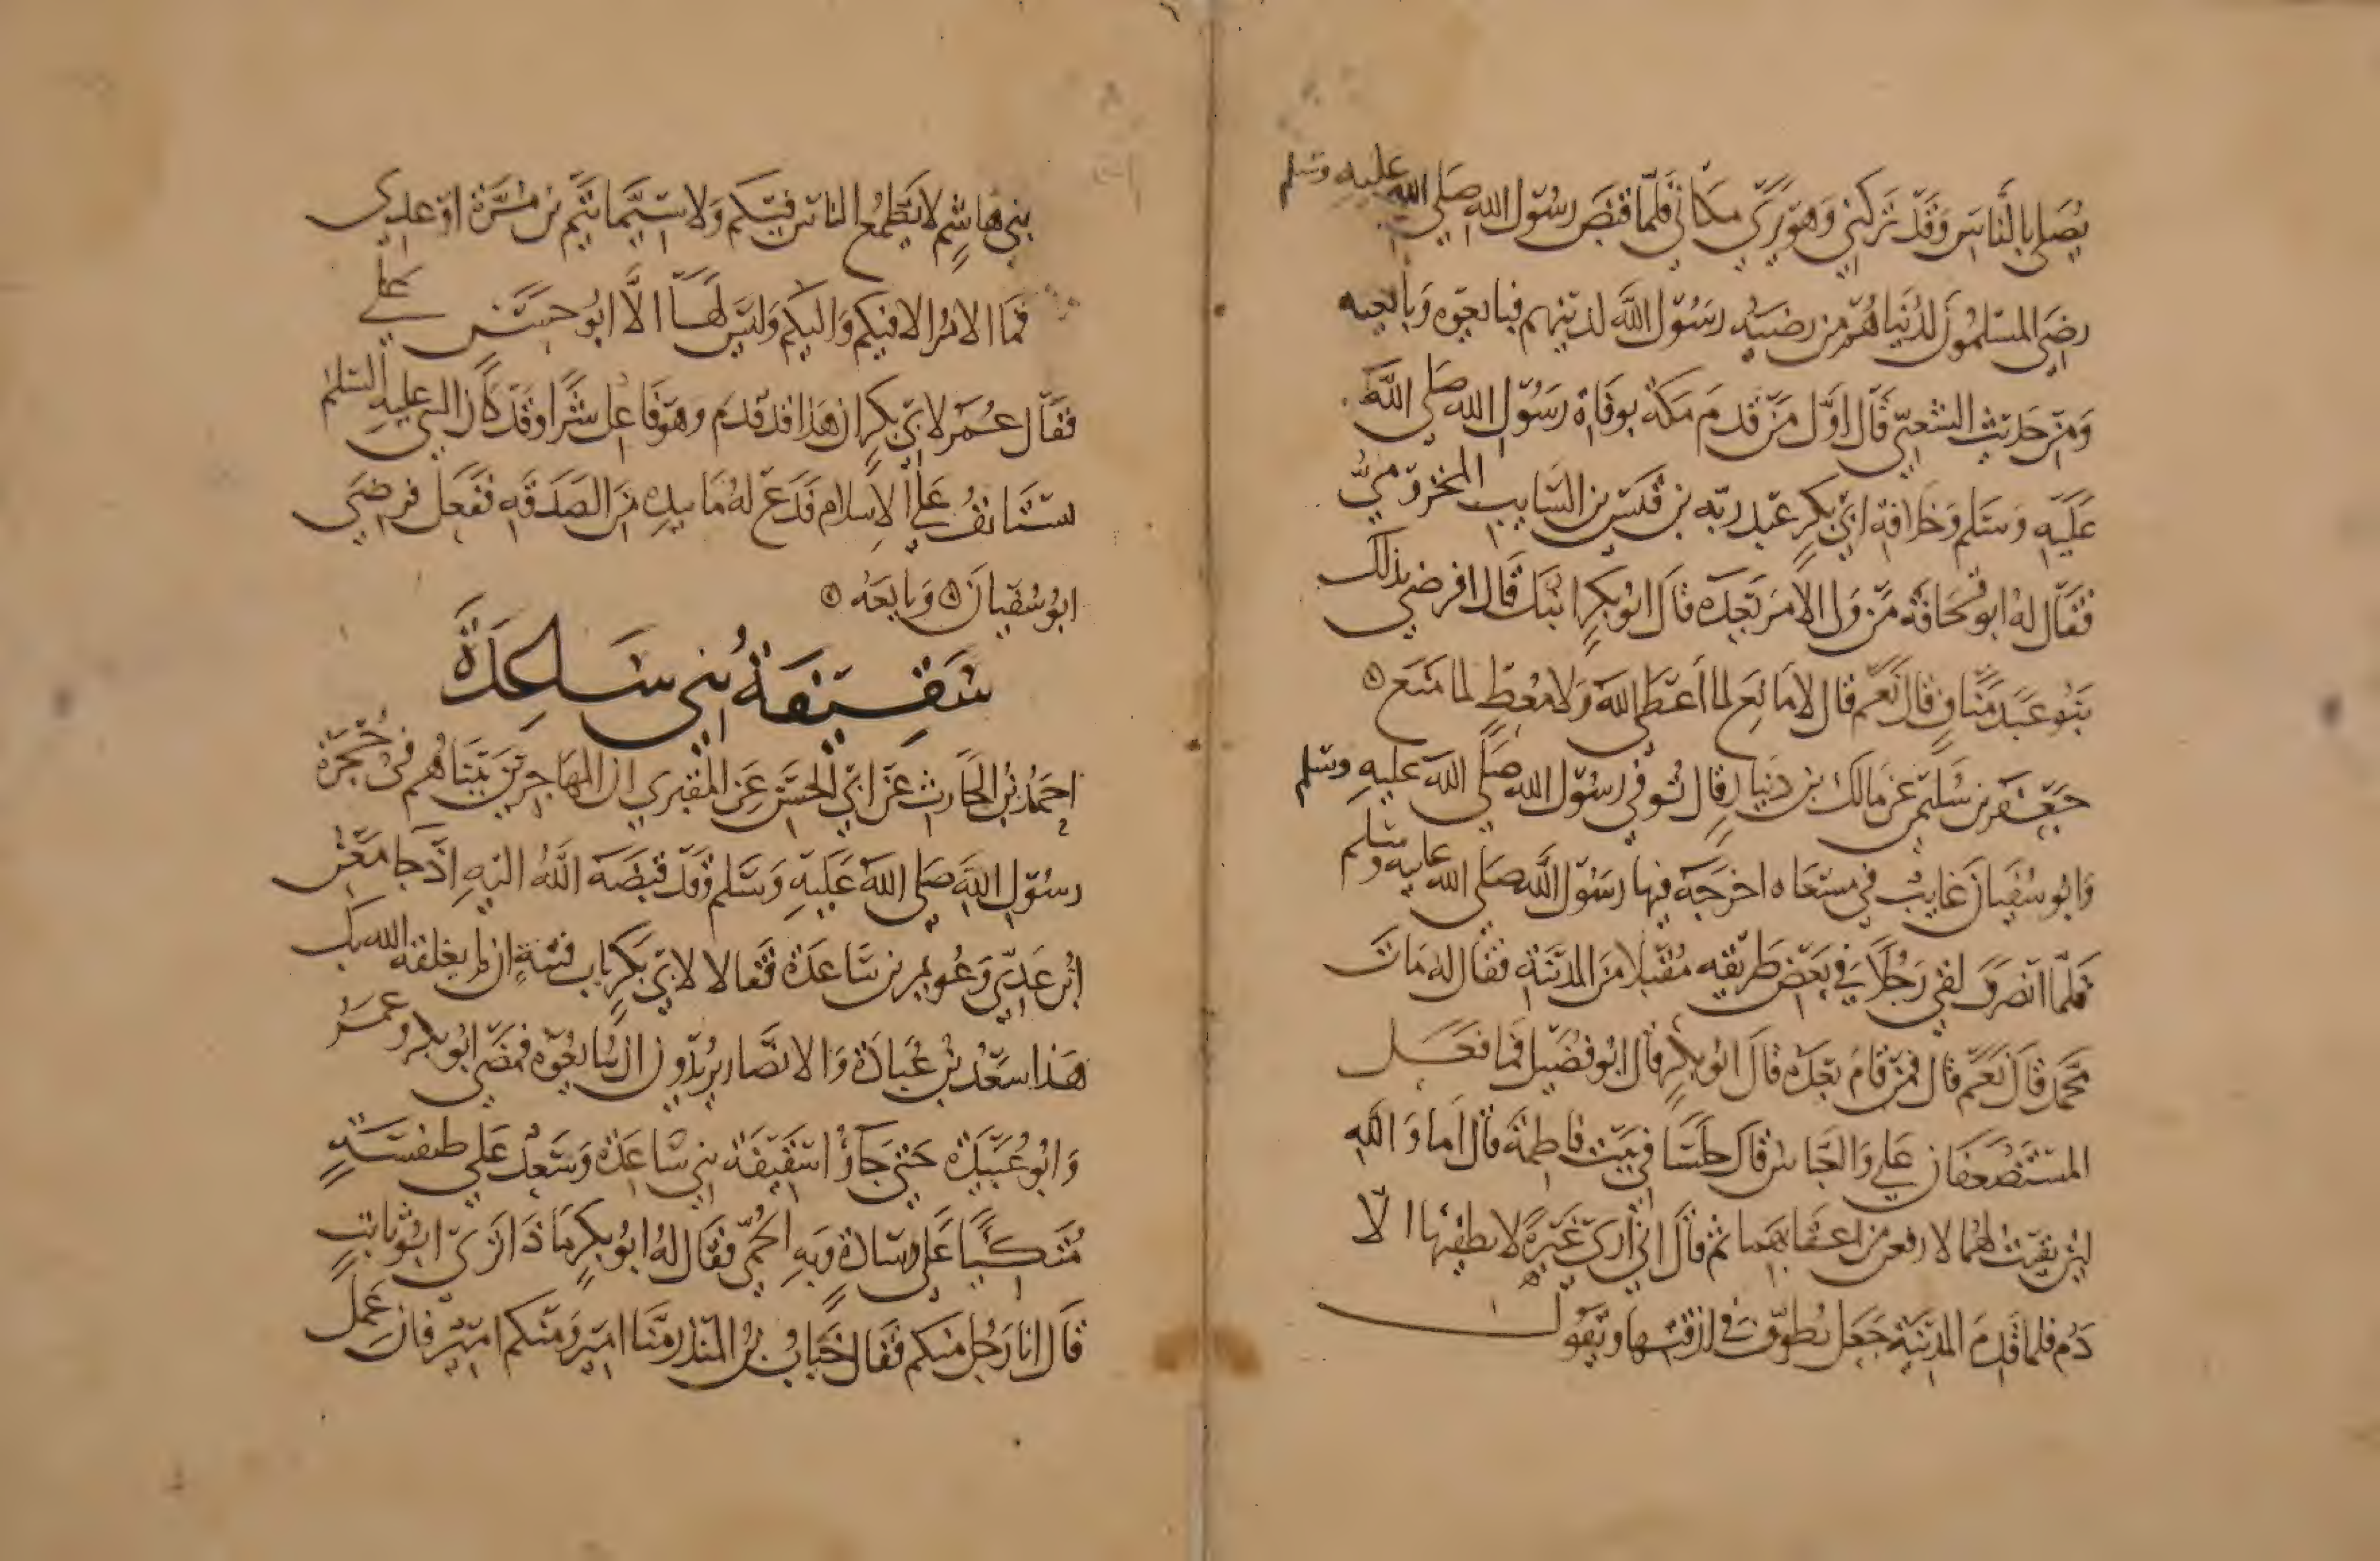 يُصَلي بالنَّاسِ وَقَدْ تَركني وَهوَ يَرَى مكاني فلمّا قبضَ رسُول الله صَلى الله عليهِ وسَلم
رضيَ المسلمُونَ لدُنياهُمْ من رضيَهُ رسُول اللهَ لدينهم فبايعُوه وَبايعته
وَمِنْ حَديث الشعبي قَال اوَّل مَنْ قدم مكة بوفاة رسُول الله صَلى الله
عَليْهِ وَسَلم وَخلافة ابي بكرٍ عَبد ربّه بن قيسْ بن السَايب المخزوميُّ
فقَال لهُ ابو قحَافَة مَنْ وَلي الامرَ بَعده قال ابو بكرٍ ابنك قَال افرضي بذلك
بَنو عَبد مَنَاف قال نَعمْ قال لا مَانعَ لما أعْطى اللهَ وَلا مُعْطِ لما مَنع
جَعْفر بن سُليمن عَن مالك بن دينار قال تُوفي رسُول الله صَلى الله عليهِ وسَلم
وَابو سُفيَان غايبُ في مسْعَاه اخرجَهَ فيها رسُول اللهَ صَلى الله عليه وسَلم
فلمّا انصَرفَ لقي رَجُلاً في بعْض طريقه مُقبلا منَ المدينَة فقال له مَات
محَّمد قال نعَمْ قال فمن قام بَعده قال ابو بكرٍ قال ابو فضَيل فما فعَل
المسْتضعَفان علي وَالعبَّاس قال جلسَا في بيْت فاطمة قال أما وَاللهِ
لئن بقيت لهُما لارفعن من اعقابهما ثم قال اني أرى غَبَرةً لا يطفيها الّا
دَم فلما قدِمَ المدينَة جَعَل يُطوف في ازقتها ويقول
بني هَاشم لا يَطمعُ الناسُ فيكم وَلا سيَّما تيْم بن مُرَّة اوْ عدي
فمَا الامرُ الا فيكم وَاليكم وَليْسَ لهَا الّا ابُو حسَن علي
فقال عُمَر لابي بكر ان هَذا قد قدمَ وهو فاعل شرًا وقَدْ كان النبي عليه السَلم
ستانفُ على الاسلام فَدعَ لهُ مَا بيده مَن الصَدَقه ففعَل فرضيَ
ابو سُفيان وَبايعَهُ
سَقِيفَةُ بني سَاعِدَة
احمَدُ بن الحَارث عَن ابي الحسَن عَن المقبري ان المهَاجرين بَينَا هُم في حُجْرة
رسُول اللهَ صَلى اللهَ عَليْهِ وَسَلم وَقدْ قبَضَهَ اللهُ اليهِ اذْ جَا معْن
ابن عَدِيّ وَعُويمر بن سَاعدَة فقالا لابي بَكرٍ باب فتنةٍ ان لم يغلقه الله بك
هَذا سَعْدُ بن عُبَادَة وَالانصَار يريْدون ان يبَايعُوه فمضَى ابو بكر وعمر
وَابو عُبيدة حَتى جَاوُا سَقيفَة بني سَاعدَة وَسَعدُ عَلي طنفسَةٍ
مُتكيًا عَلي وِسَادةٍ وَبهِ الحُمّى فقَال لهُ ابُو بكرٍ مَا ذَا ترَى ابُو ثَابتٍ
قال انا رَجُل منكم فقَال حُبَابُ بن المنذر منّا امير وَمنكم امير فان عَمل